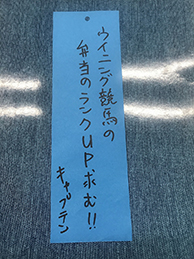 ウイニング競馬の
弁当のランクUP求む!!
キャプテン